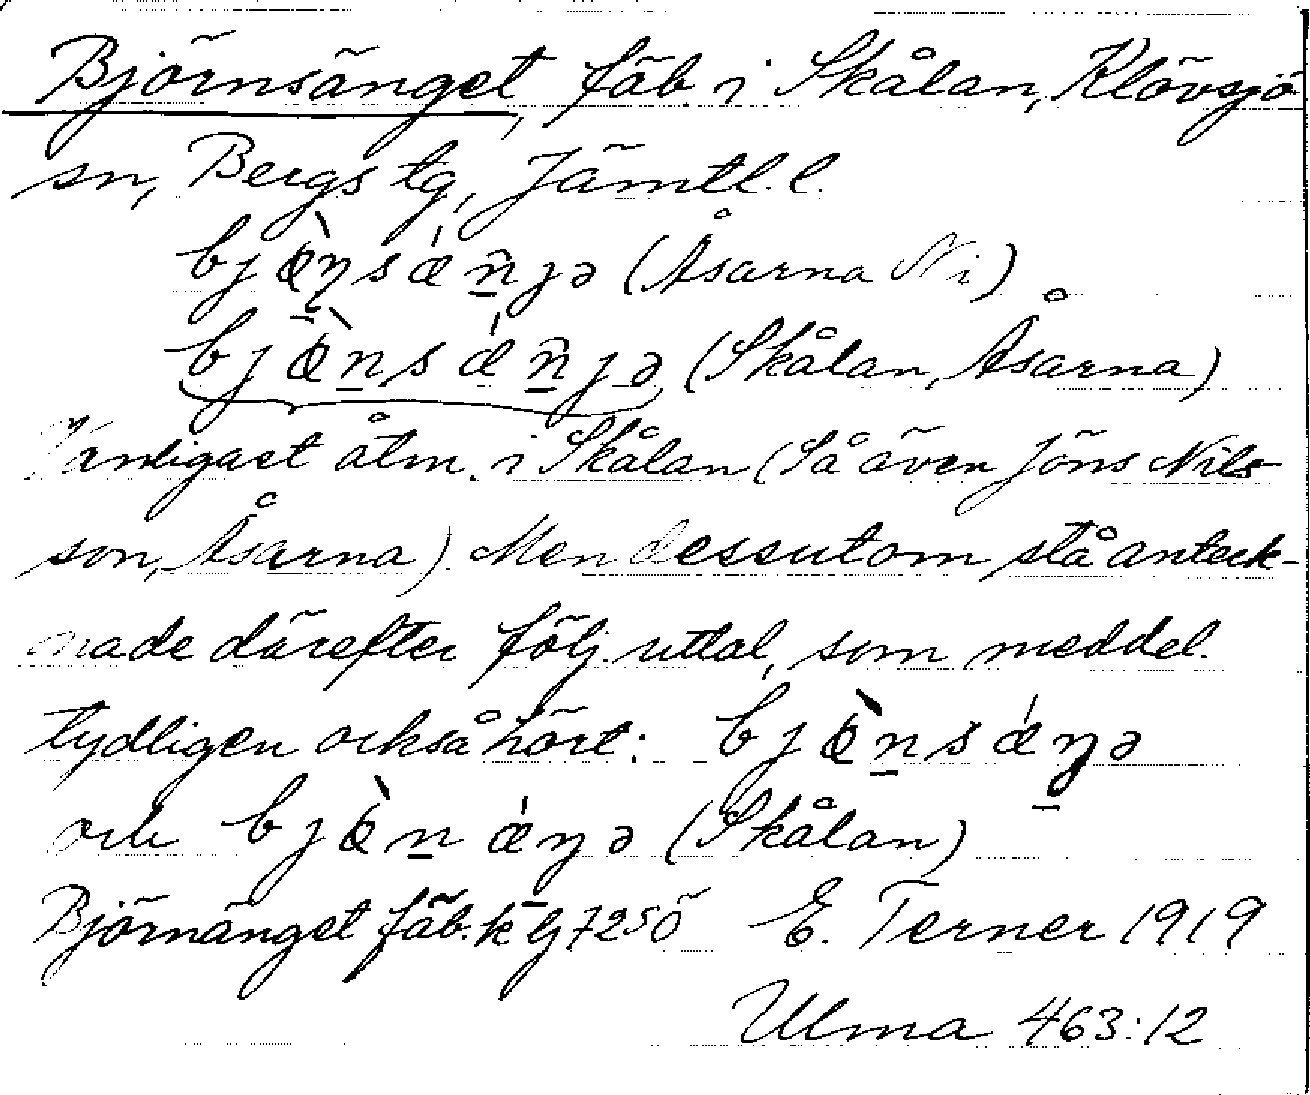 Björnsänget, fäb. i Skålan, Klövsjö
sn, Bergs tg, Jämtl. l.
bjœ̀ṉsǽṉjə (Åsarna Ni)
bjœ̀ṉsǽṉjə (Skålan, Åsarna)
Vanligast åtm. i Skålan (Så även Jöns Nils
son, Åsarna). Men dessutom stå anteck-
nade därefter följ. uttal, som meddel.
tydligen också hört: bjœ̀ṉsǽŋ̱ə
och bjœ̀ṉǽŋ̱ə (Skålan)
Björnänget fäb. k lj 7250 E. Terner 1919
Ulma 463:12